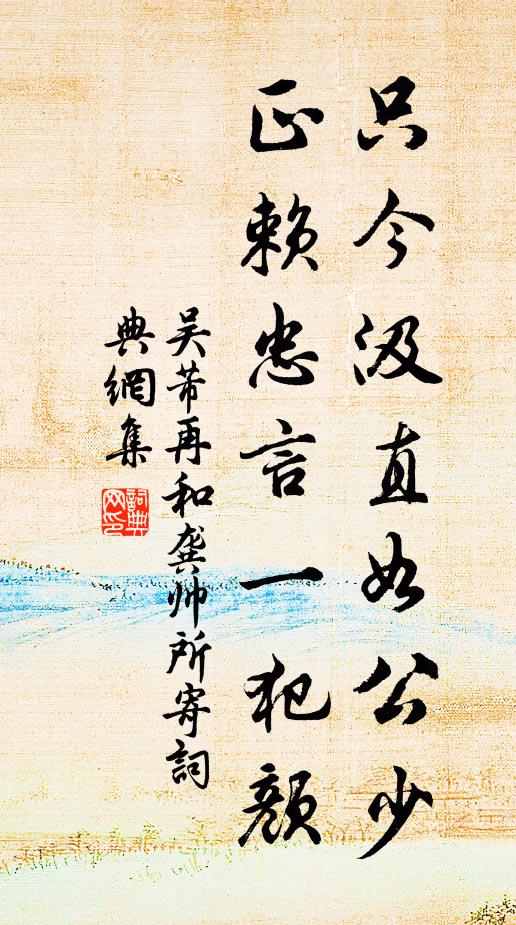 只今汲直如公少
正赖忠言一犯颜
吴芾再和龚帅所寄词
典網集
詞典網印